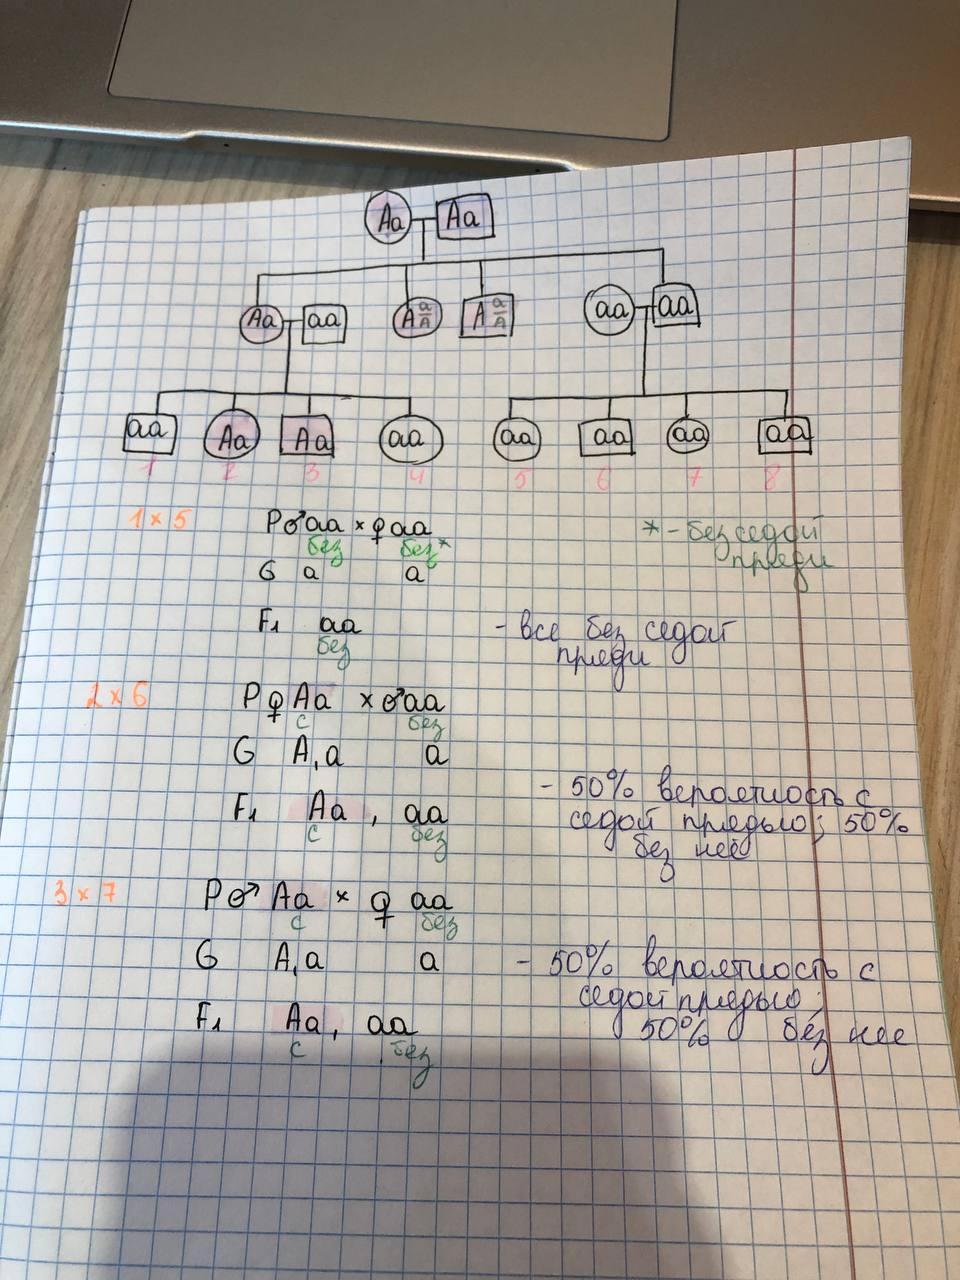 Aa Aa
Aa aa A a/A A a/A aa aa
aa Aa Aa aa aa aa aa aa
1 2 3 4 5 6 7 8
1 x 5 P ♂ aa x ♀ aa * - без седой
без без* пряди
G a a
F1 aa - все без седой
без пряди
2 x 6 P ♀ Aa x ♂ aa
с без
G A, a a
- 50% вероятность с
F1 Aa , aa седой прядью; 50%
с без без неё
3 x 7 P ♂ Aa x ♀ aa
с без
G A, a a - 50% вероятность с
седой прядью;
F1 Aa, aa 50% без нее
с без